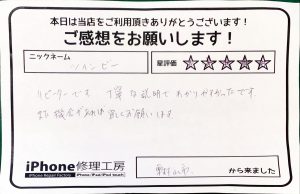 本日は当店をご利用頂きありがとうございます!
ご感想をお願いします!
ニックネーム
ツインビー
星評価 ☆☆☆☆☆
リピーターです 丁寧な説明でわかりやすかったです
また機会があれば宜しくお願いします
iPhone修理工房
iPhone Repair Factory iPhone/iPad/iPod touch
から来ました